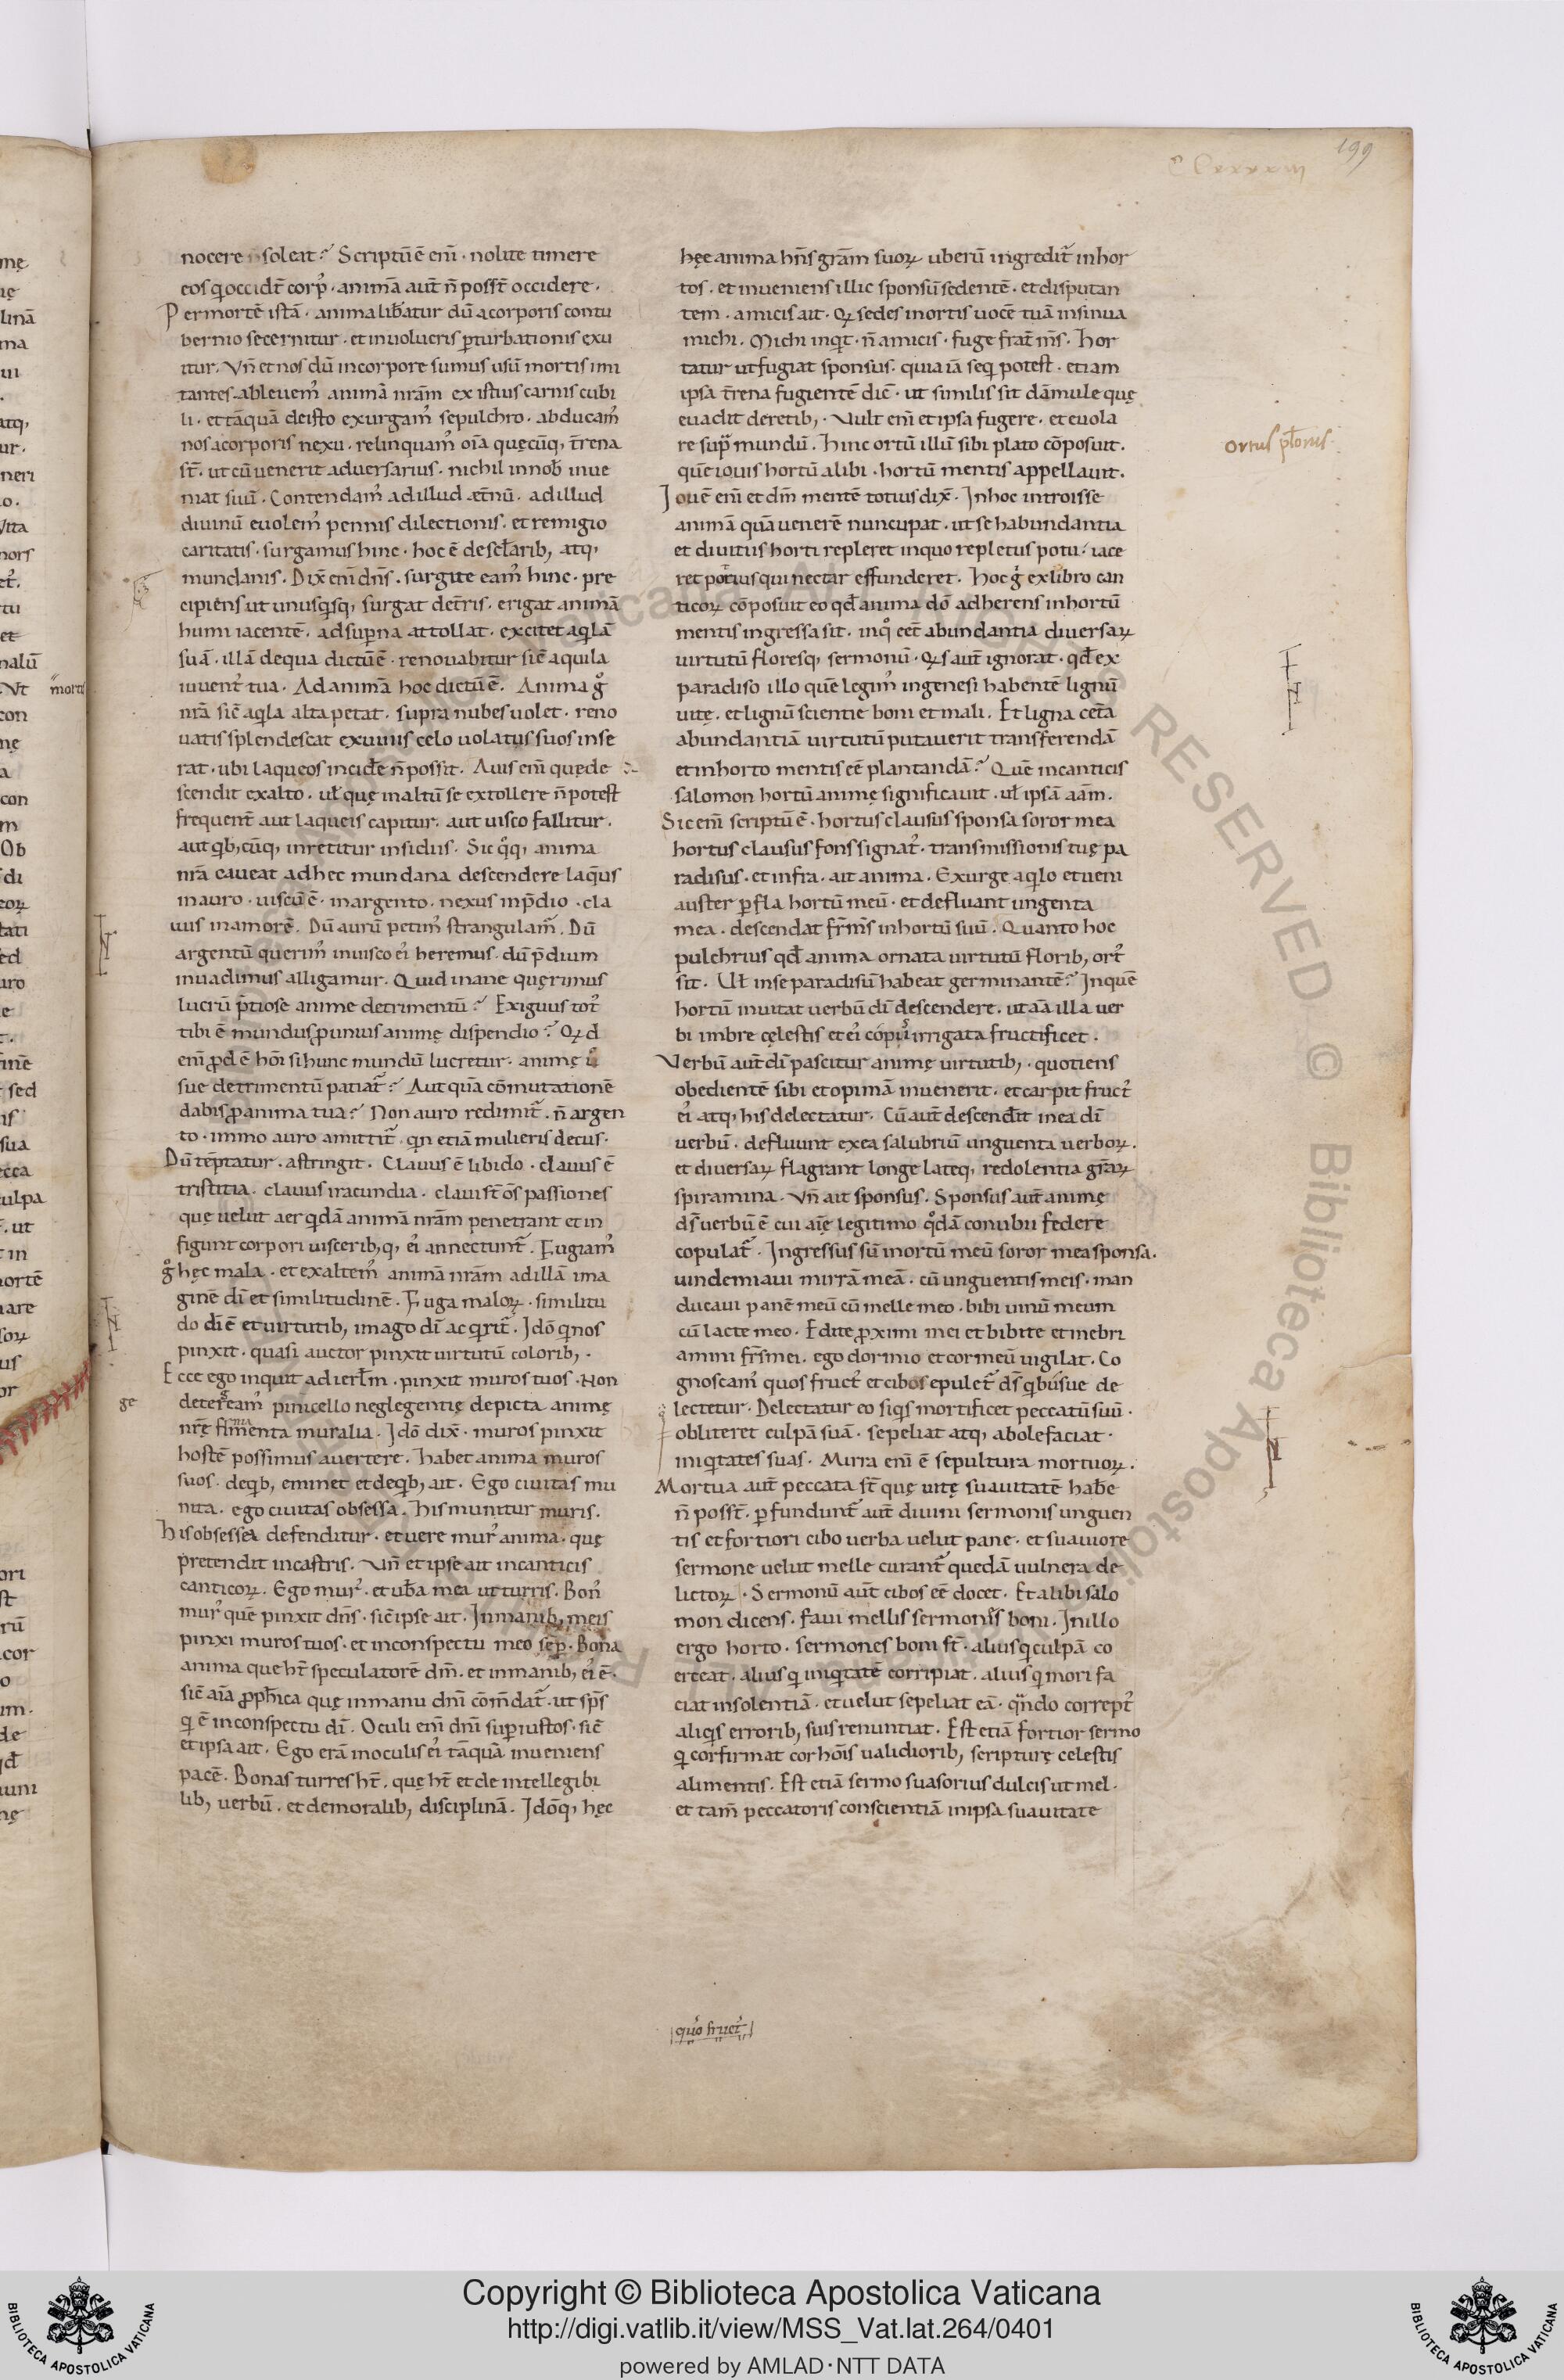 199
nocere soleat? Scriptū ē eni̅ · nolite timere
eos q̇ occidt̅ corp᷒ · animā aut̅ n̅ posst̅ occidere ·
Per mortē istā · anima lib̅atur dū a corporis contu
bernio secernitur · et inuolucris p̱turbationis exu
itur · Vn̅ et nos dū in corpore sumus usū mortis imi
tantes · ableuem᷒ animā nr̅am ex istius carnis cubi
li · et tāquā de isto exurgam᷒ sepulchro · abducam᷒
nos a corporis nexu · relinquam᷒ oīa quęcūq, t̅rena
st̅ · ut cū uenerit aduersarius · nichil in nob̅ inue
niat suū · Contendam᷒ ad illud æt̅nū · ad illud
diuinū euolem᷒ pennis dilectionis · et remigio
caritatis · surgamus hinc · hoc ē de sc̅ларib, atq,
mundanis · Dix̅ eni̅ dn̅s · surgite eam᷒ hinc · pre
cipiens ut unusq̇sq, surgat de t̅ris · erigat animā
humi iacentē · ad sup̱na attollat · excitet aq̇lā
suā · illā de qua dictū ē · renouabitur sic̅ aquila
iuuent᷒ tua · Ad animā hoc dictū ē · Anima g̊
nr̅a sic̅ aq̇la alta petat · supra nubes uolet · reno
uatis splendescat exuuiis celo uolatus suos inse
rat · ubi laqueos incide̅ n̅ possit · Auis eni̅ quę de
scendit ex alto · ul̅ quę in altū se extollere n̅ potest
frequent̅ aut laqueis capitur · aut uisco fallitur ·
aut q̇b,cūq, inretitur insidiis · Sic q̊q, anima
nr̅a caueat ad hec mundana descendere laq̄us
in auro · uiscū ē · in argento · nexus in p̄dio · cla
uus in amore̅ · Dū aurū petim᷒ strangulam̃ · Dū
argentū querim᷒ in uisco ei᷒ heremus · dū p̄dium
inuadimus alligamur · Quid inane quęrimus
lucrū p̄tiose anime detrimentū? Exiguus tot᷒
tibi ē mundus p̱ unius animę disp̱endio? Qd
eni̅ p̱d ē hoi̅ si hunc mundū lucretur · animę u̅
sue detrimentū patiat̃? Aut quā cōmutationē
dabis p̱ anima tua? Non auro redimit̃ · n̅ argen
to · immo auro amittit̃ · q̇n etiā mulieris decus ·
Dū tēptatur · astringit · Clauus ē libido · clauus ē
tristitia · clauus iracundia · claui st̅ oms̅ passiones
quę uelut aer q̇dā animā nr̅am penetrant et in
figunt corpori uiscerib,q, ei᷒ annectunt̃ · Fugiam᷒
g̊ hęc mala · et exaltem᷒ animā nr̅am ad illā ima
ginē di̅ et similitudinē · Fuga maloꝝ · similitu
do di̅ ē et uirtutib, imago di̅ ac q̇rit̃ · Idō q̇ nos
pinxit · quasi auctor pinxit uirtutū colorib, ·
Ecce ego inquit ad ierl̅m · pinxit muros tuos · Non
deteream᷒ pinicello neglegentię depicta animę
ge
nr̅ę firmenta muralia · Idō dix̅ · muros pinxit
hostē possimus auertere · habet anima muros
suos · de q̇b, eminet et de q̇b, ait · Ego ciuitas mu
nita · ego ciuitas obsessa · his munitur muris ·
his obsessa defenditur · et uere mur᷒ anima · quę
pretendit in castris · Vn̅ et ipse ait in canticis
canticoꝝ · Ego mur᷒ · et ub̅a mea ut turris · Bon᷒
mur᷒ quē pinxit dn̅s · sic̅ ipse ait · In manib, meis
pinxi muros tuos · et in conspectu meo sēp̱ · Bona
anima que ht̅ speculatorē dm̅ · et in manib, ei᷒ ē ·
sic̅ aīa p̱ph̅ica quę in manu dni̅ cōm̅dat̃ · ut sps̅
q̇ ē in conspectu di̅ · Oculi eni̅ dni̅ sup̱ iustos · sic̅
et ipsa ait · Ego erā in oculis ei᷒ tāquā inueniens
pacē · Bonas turres ht̅ · quę ht̅ et de intellegibi
lib, uerbū · et de moralib, disciplinā · Idōq, hęc
hęc anima hn̅s gr̅am suoꝝ uberū ingredit̃ in hor
tos · et inueniens illic sponsū sedentē · et disputan
tem · amicis ait · Q sedes in ortis uocē tuā insinua
michi · Michi inq̇t · n̅ amicis · fuge frat̅ ms̅ · Hor
tatur ut fugiat sponsus · quia iā seq̇ potest · etiam
ipsa t̅rena fugientē dic̅ · ut similis sit dāmule quę
euadit de retib, · Vult eni̅ et ipsa fugere · et euola
re sup̱ mundū · Hinc ortū illū sibi plato cōposuit ·
ortus pl̅onis ·
quē iouis hortū alibi · hortū mentis appellauit ·
Iouē eni̅ et dm̅ mentē totius dix̅ · In hoc introisse
animā quā uenerē nuncupat · ut se habundantia
et diuitiis horti repleret in quo repletus potu · iace
ret potius qui nectar effunderet · Hoc g̊ ex libro can
ticoꝝ cōposuit eo qd̅ anima dō adherens in hortū
mentis ingressa sit · in q̊ eet̅ abundantia diuersaꝝ
uirtutū floresq, sermonū · Q̇s aut̅ ignorat · qd̅ ex
paradiso illo quē legim᷒ in genesi habentē lignū
uitę · et lignū scientie boni et mali · Et ligna cet̅a
abundantiā uirtutū putauerit transferendā
et in horto mentis ee̅ plantandā? Quē in canticis
salomon hortū animę significauit · ul̅ ipsā aām ·
Sic eni̅ scriptū ē · hortus clausus sponsa soror mea
hortus clausus fons signat᷒ · transmissionis tuę pa
radisus · et infra · ait anima · Exurge aq̇lo et ueni
auster p̱fla hortū meū · et defluant ungenta
mea · descendat fr̅ ms̅ in hortū suū · Quanto hoc
pulchrius qd̅ anima ornata uirtutū florib, ort᷒
sit · Ul̅ in se paradisū habeat germinantē? In quē
hortū inuitat uerbū di̅ descendere · ut aā illa uer
bi imbre cęlestis et ei᷒ copiis irrigata fructificet ·
Verbū aut̅ di̅ pascitur animę uirtutib, · quotiens
obedientē sibi et opimā inuenerit · et carpit fruct᷒
ei᷒ atq, his delectatur · Cū aut̅ descendit in ea di̅
uerbū · defluunt ex ea salubriū unguenta uerboꝝ ·
et diuersaꝝ flagrant longe lateq, redolentia gr̅aꝝ
spiramina · Vn̅ ait sponsus · Sponsus aut̅ animę
ds̅ uerbū ē cui aīę legitimo q̊dā conubii federe
copulat̃ · Ingressus sū in ortū meū soror mea sponsa ·
uindemiaui mirrā meā · cū unguentis meis · man
ducaui panē meū cū melle meo · bibi uinū meum
cū lacte meo · Edite p̱ximi mei et bibite et inebri
amini fr̅s mei · ego dormio et cor meū uigilat · Co
gnoscam᷒ quos fruct᷒ et cibos epulet̃ ds̅ q̇busue de
lectetur · Delectatur eo siq̇s mortificet peccatū suū ·
obliteret culpā suā · sepeliat atq, abolefaciat ·
iniq̇tates suas · Mirra eni̅ ē sepultura mortuoꝝ ·
Mortua aut̅ peccata st̅ quę uitę suauitatē hab̅e
n̅ posst̅ · p̱fundunt̃ aut̅ diuini sermonis unguen
tis et fortiori cibo uerba uelut pane · et suauiore
sermone uelut melle curant̃ quedā uulnera de
lictoꝝ · Sermonū aut̅ cibos ee̅ docet · Et alibi salo
mon dicens · faui mellis sermonis boni · In illo
ergo horto · sermones boni st̅ · alius q̇ culpā co
erceat · alius q̇ iniq̇tatē corripiat · alius q̇ mori fa
ciat insolentiā · et uelut sepeliat eā · qn̅do corrept᷒
aliq̇s errorib, suis renuntiat · Est etiā fortior sermo
q̇ confirmat cor hoi̅s ualidiorib, scripturę celestis
alimentis · Est etiā sermo suasorius dulcis ut mel ·
et tam̅ peccatoris conscientiā in ipsa suauitate
quo fruct᷒
Copyright © Biblioteca Apostolica Vaticana
http://digi.vatlib.it/view/MSS_Vat.lat.264/0401
powered by AMLAD·NTT DATA
BIBLIOTECA APOSTOLICA VATICANA
BIBLIOTECA APOSTOLICA VATICANA